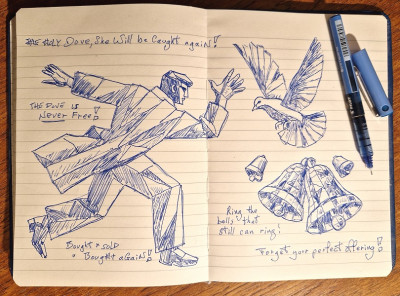 The Holy Dove, She Will be Caught again!
THE DOVE is
Never Free!
Bought & SOLD
& Bought aGaiN!
Ring the
bells that
still can ring!
Forget your perfect offering!